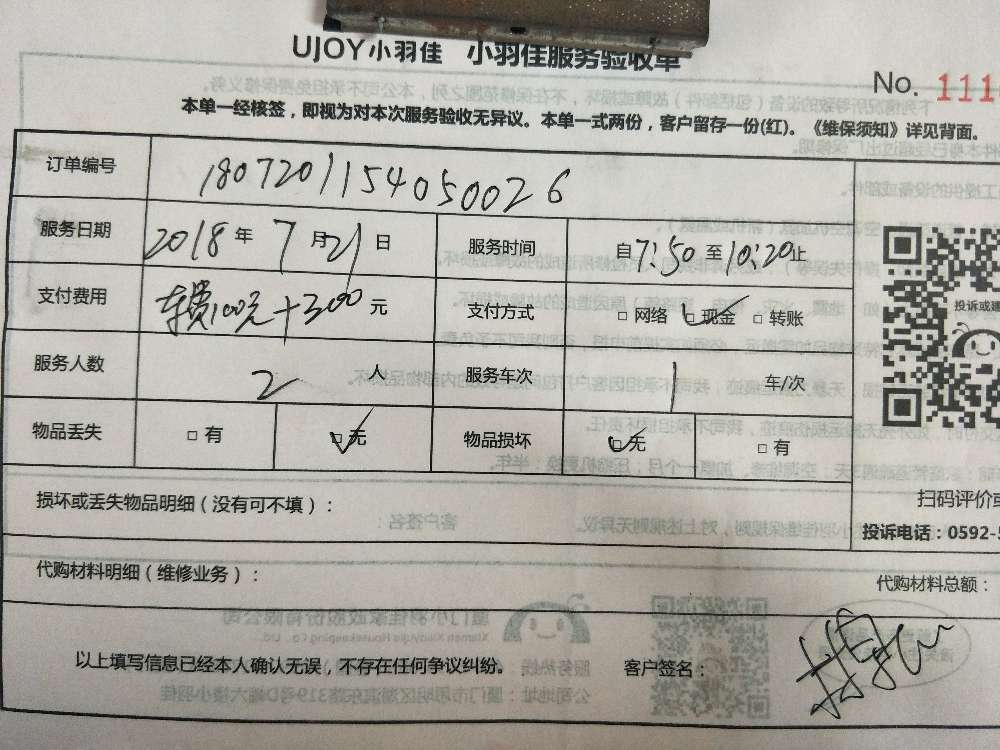 UJOY小羽佳 小羽佳服务验收单
No. 111
本单一经核签，即视为对本次服务验收无异议。本单一式两份，客户留存一份(红)。《维保须知》详见背面。
订单编号 1807201154050026
服务日期 2018年7月21日 服务时间 自7:50至10:20止
支付费用 车费100元+300元 支付方式 □网络 □现金 □转账
投诉或建
服务人数 2人 服务车次 1 车/次
物品丢失 □有 □无 物品损坏 □无 □有
损坏或丢失物品明细（没有可不填）：
扫码评价或
投诉电话：0592-5
代购材料明细（维修业务）：
代购材料总额：
以上填写信息已经本人确认无误，不存在任何争议纠纷。 客户签名：